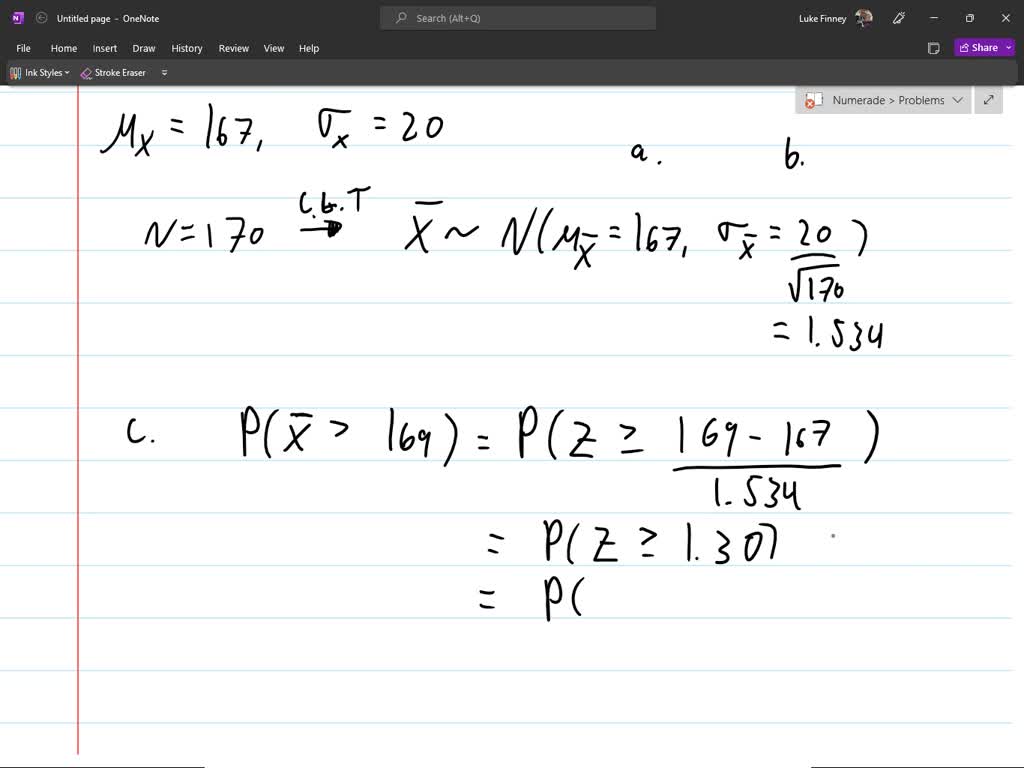 Untitled page - OneNote
Search (Alt+Q)
Luke Finney
File Home Insert Draw History Review View Help
Share
Ink Styles Stroke Eraser
Numerade > Problems
μ_X = 167, σ_x = 20
a. b.
N = 170 C.L.T → X̄ ~ N(μ_X̄ = 167, σ_X̄ = 20/√170)
= 1.534
c. P(X̄ > 169) = P(Z ≥ (169 - 167)/1.534)
= P(Z ≥ 1.30)
= P(